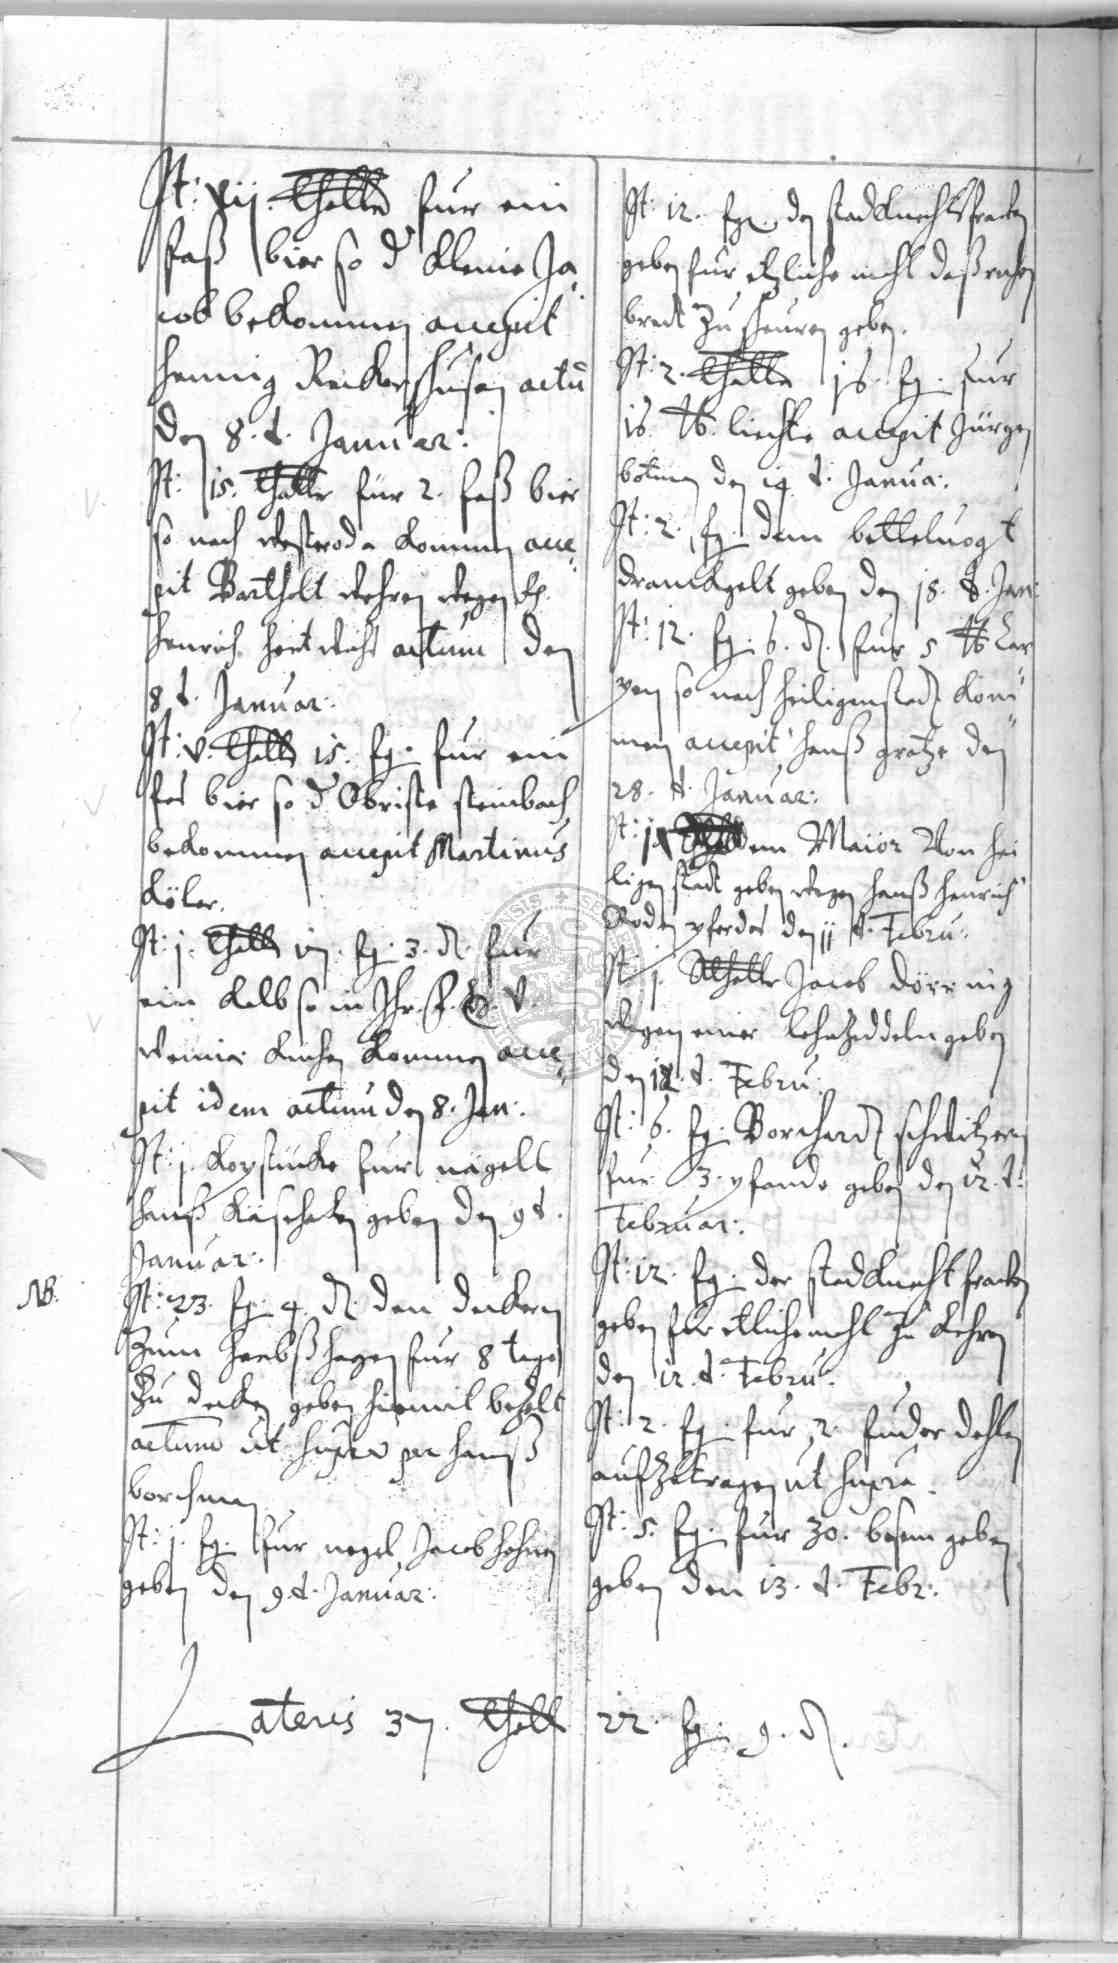 It: xij. thaller fur ein
faß bier so d kleine Ja,,
cob bekommen accepit
Hennig Reckershusen actu
den 8. t. Januar:
It: 15. thaller fur 2. faß bier
so nach Westerode kommen acce,,
pit Barthelt Wehren wegen
Henrich actum den
8 t. Januar:
It: v. thaller 15. fg. fur ein
fas bier so d Obriste Steinbach
bekommen accepit Martinus
Köler.
It: j. thaller vij. fg. 3. d. fur
ein Kalb so in Ihr. f. g. v.
Weinia Kuchen kommen acce,,
pit idem actum den 8. Jan:
It: j. kopstucke fur nagell
Hanß geben den 9 t.
Januar:
NB.
It: 23. fg. 4. d. den deckern
zum fur 8 tage
zu decken geben hiemit bezalt
actum ut supra per Hanß
borchmen
It: j. fg. fur negel Jacob Hohnen
geben den 9 t. Januar:
It: 12. fg. der stadknechtsfrawen
geben fur etzliche mahl
zu scheuren geben.
It: 2. thaller 16. fg. fur
16. lb. liechte accepit Jürgen
botmen den 14 t. Janua:
It: 2. fg. dem bettelvogt
dranckgelt geben den 18. t. Jan:
It: 12. fg. 6. d. fur 5 lb Kar,,
pen so nach Heiligenstadt kom,,
men accepit Hanß gratze den
28. t. Januar:
It: dem Maiör Von Hei,,
ligenstadt geben wegen Hanß Henrich
Roden pferdes den 11 t. Febru:
It: j. thaller Jacob Dörring
wegen einer lehnzeddeln geben
den 12. t. Febru:
It: 6. fg. Borchardt schnitzern
fur 3. pfande geben den 12. t.
Februar:
It: 12. fg. der stadknecht frawen
geben fur etliche mahl zu kehren
den 12. t. Febru:
It: 2. fg. fur 2. fuder dehlen
auffzutragen ut supra.
It: 5. fg. fur 30. besem geben
geben den 13. t. Febr:
Lateris 37. thaller 22. fg. 9. d.